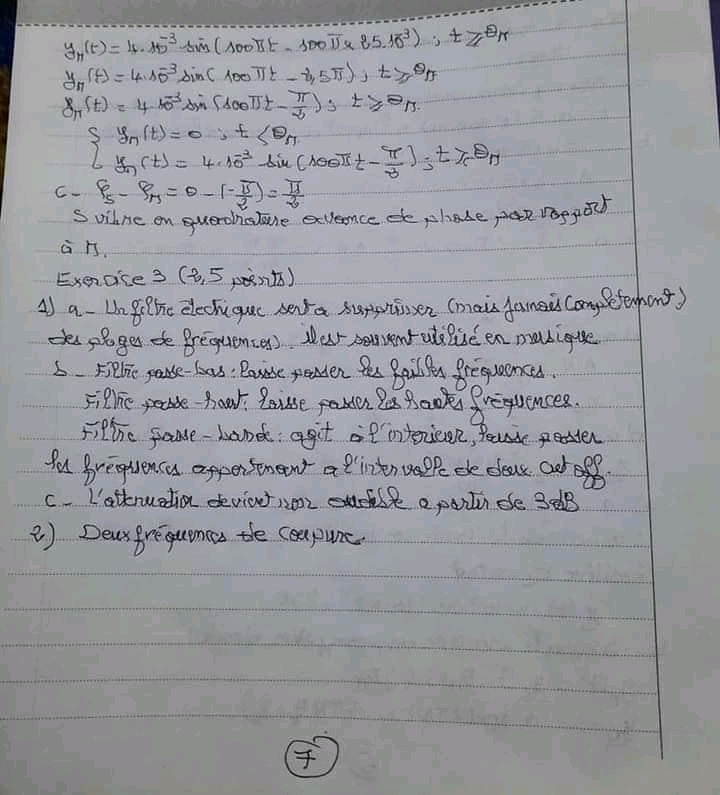 y_M(t) = 4.10⁻³ sin(100πt - 100π × 25.10⁻³) ; t ≥ θ_M
y_M(t) = 4.10⁻³ sin(100πt - 2,5π) ; t ≥ θ_M
y_M(t) = 4 10⁻³ sin(100πt - π/2) ; t ≥ θ_M
{ y_M(t) = 0 ; t < θ_M
y_M(t) = 4.10⁻³ sin(100πt - π/2) ; t ≥ θ_M
c - φ_S - φ_M = 0 - (-π/2) = π/2
S vibre en quadrature avance de phase par rapport
à M.
Exercice 3 (2,5 points)
1) a - Un filtre électrique sert à supprimer (mais jamais complètement)
des plages de fréquences). Il est souvent utilisé en musique
b - Filtre passe-bas : laisse passer les faibles fréquences.
Filtre passe-haut : laisse passer les hautes fréquences.
Filtre passe-bande : agit à l'intérieur, laisse passer
les fréquences appartenant à l'intervalle de deux cut off.
c - L'atténuation devient audible a partir de 3dB
2) Deux fréquences de coupure.
7